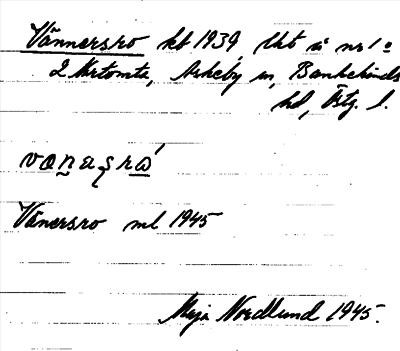 Vännersro kb 1939, lht å nr 1:
2 Krtomta, Askeby sn, Bankekinds
hd, Östg. l.
vanaṣrȧ́
Vänersro ml 1945
Maja Nordlund 1945.